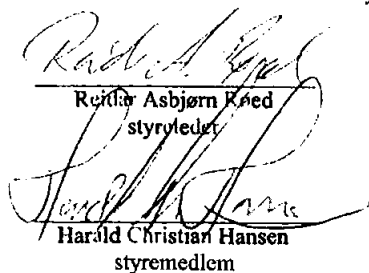 Reidar Asbjørn Røed
styreleder
Harald Christian Hansen
styremedlem